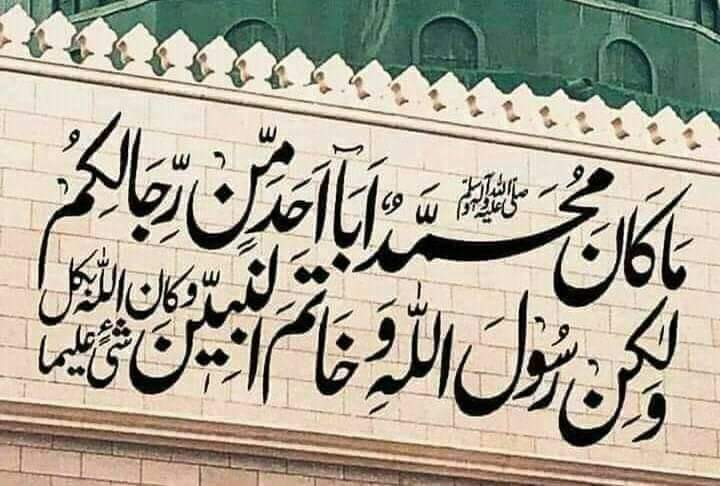 مَا كَانَ مُحَمَّدٌ ﷺ اَبَآ اَحَدٍ مِّنْ رِّجَالِكُمْ
وَلٰكِنْ رَسُولَ اللهِ وَخَاتَمَ النَّبِيِّنَ وکان اللہ بکل شئ علیما